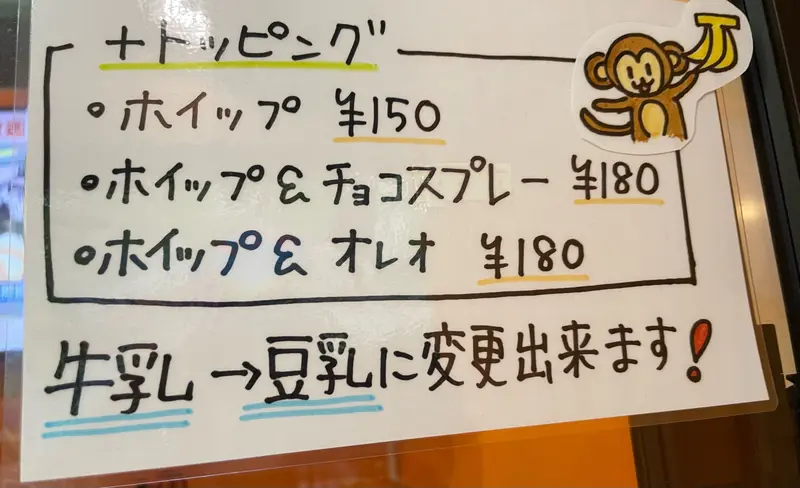 +トッピング
・ホイップ ¥150
・ホイップ&チョコスプレー ¥180
・ホイップ&オレオ ¥180
牛乳→豆乳に変更出来ます!